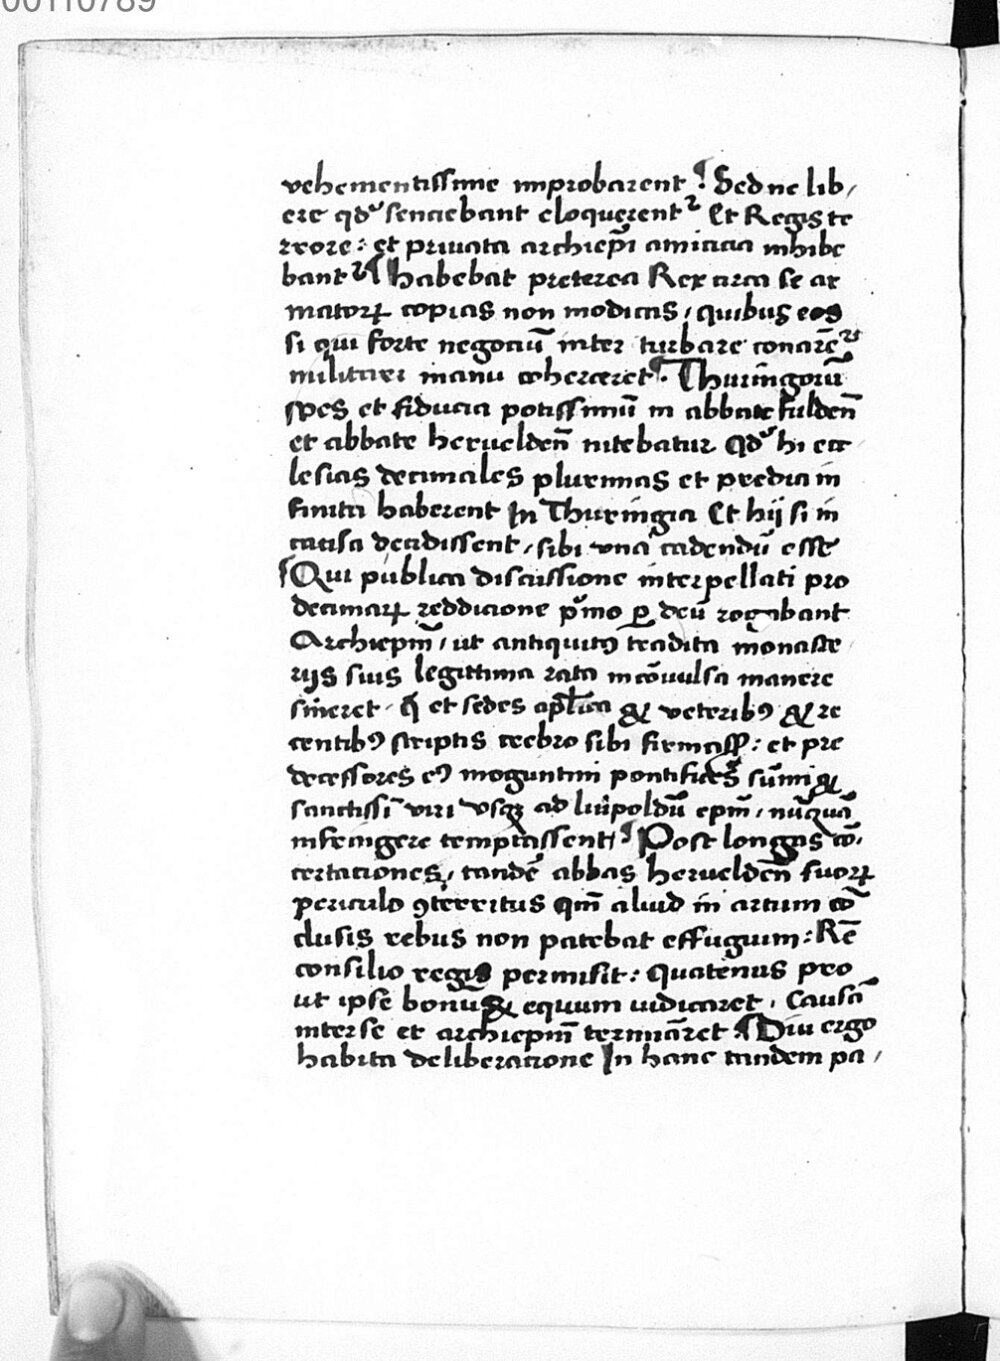 00110789
vehementissime improbarent ¶ Sed ne lib,
ere qd' senciebant eloquerent᷑ Et Regis te
rrore: et priuata archiep̄i amicicia inhibe
bant᷑ ¶ habebat preterea Rex circa se ar
matorꝝ copias non modicas, quibus eos
si qui forte negociū inter turbare conarēt᷑
militari manu coherceret. Thuringorū
spes et fiducia potissimū in abbate fulden̄
et abbate herueldeñ nitebatur Qd' hi ecc
lesias decimales plurimas et predia in
finita haberent In Thuringia Et hij si in
causa decidissent, sibi vna cadendū esse
Qui publica discussione interpellati pro
decimarꝝ reddicione p'mo ꝑ deū rogabant
Archiepm̄, ut antiquitꝰ tradita monaste
rijs suis legittima rata incōuulsa manere
sineret. q̄ et sedes apl̄ica & veteribꝰ & re
centibꝰ scriptis crebro sibi firmass̄: et pre
decessores eꝰ moguntini pontifices sūmi &
sanctissī viri vsqꝫ ad liupoldū epm̄, nūquā
infringere temptassent, ¶ Post longas cō,
certaciones, tandē abbas herueldeñ suorꝝ
periculo ꝯterritus qm̄ aliud in artum cō
clusis rebus non patebat effugium: Rē
consilio regis permisit: quatenus pro
ut ipse bonū & equum iudicaret, causā
inter se et archiepm̄ termināret. ¶ Diu ergo
habita deliberacione In hanc tandem pa,